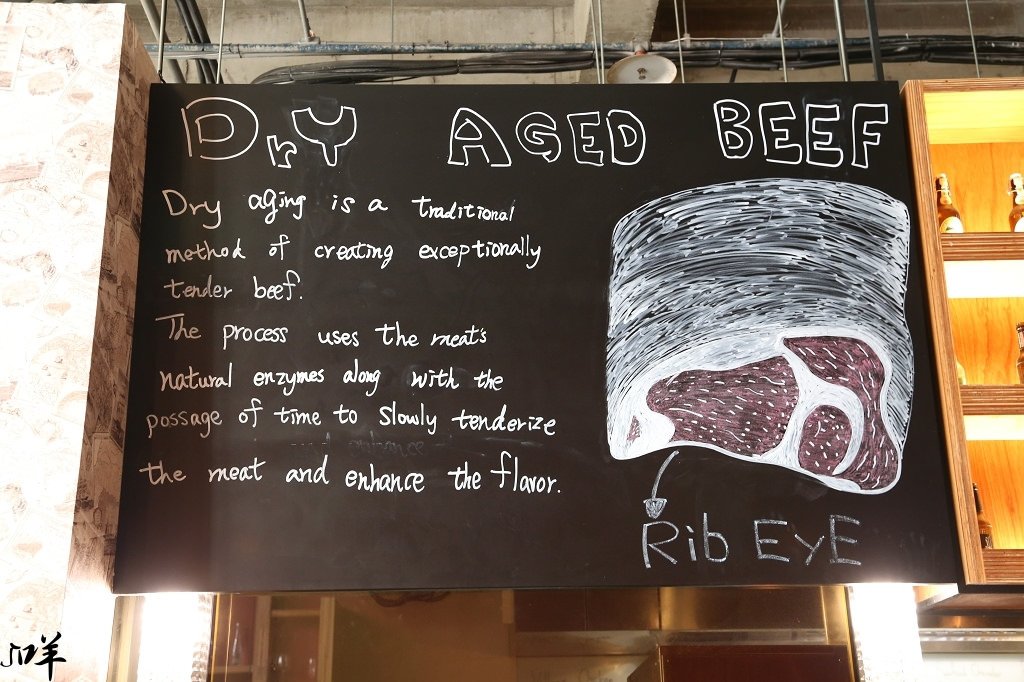 DrY AGED BEEF
Dry aging is a traditional
method of creating exceptionally
tender beef.
The process uses the meat's
natural enzymes along with the
possage of time to slowly tenderize
the meat and enhance the flavor.
Rib EyE